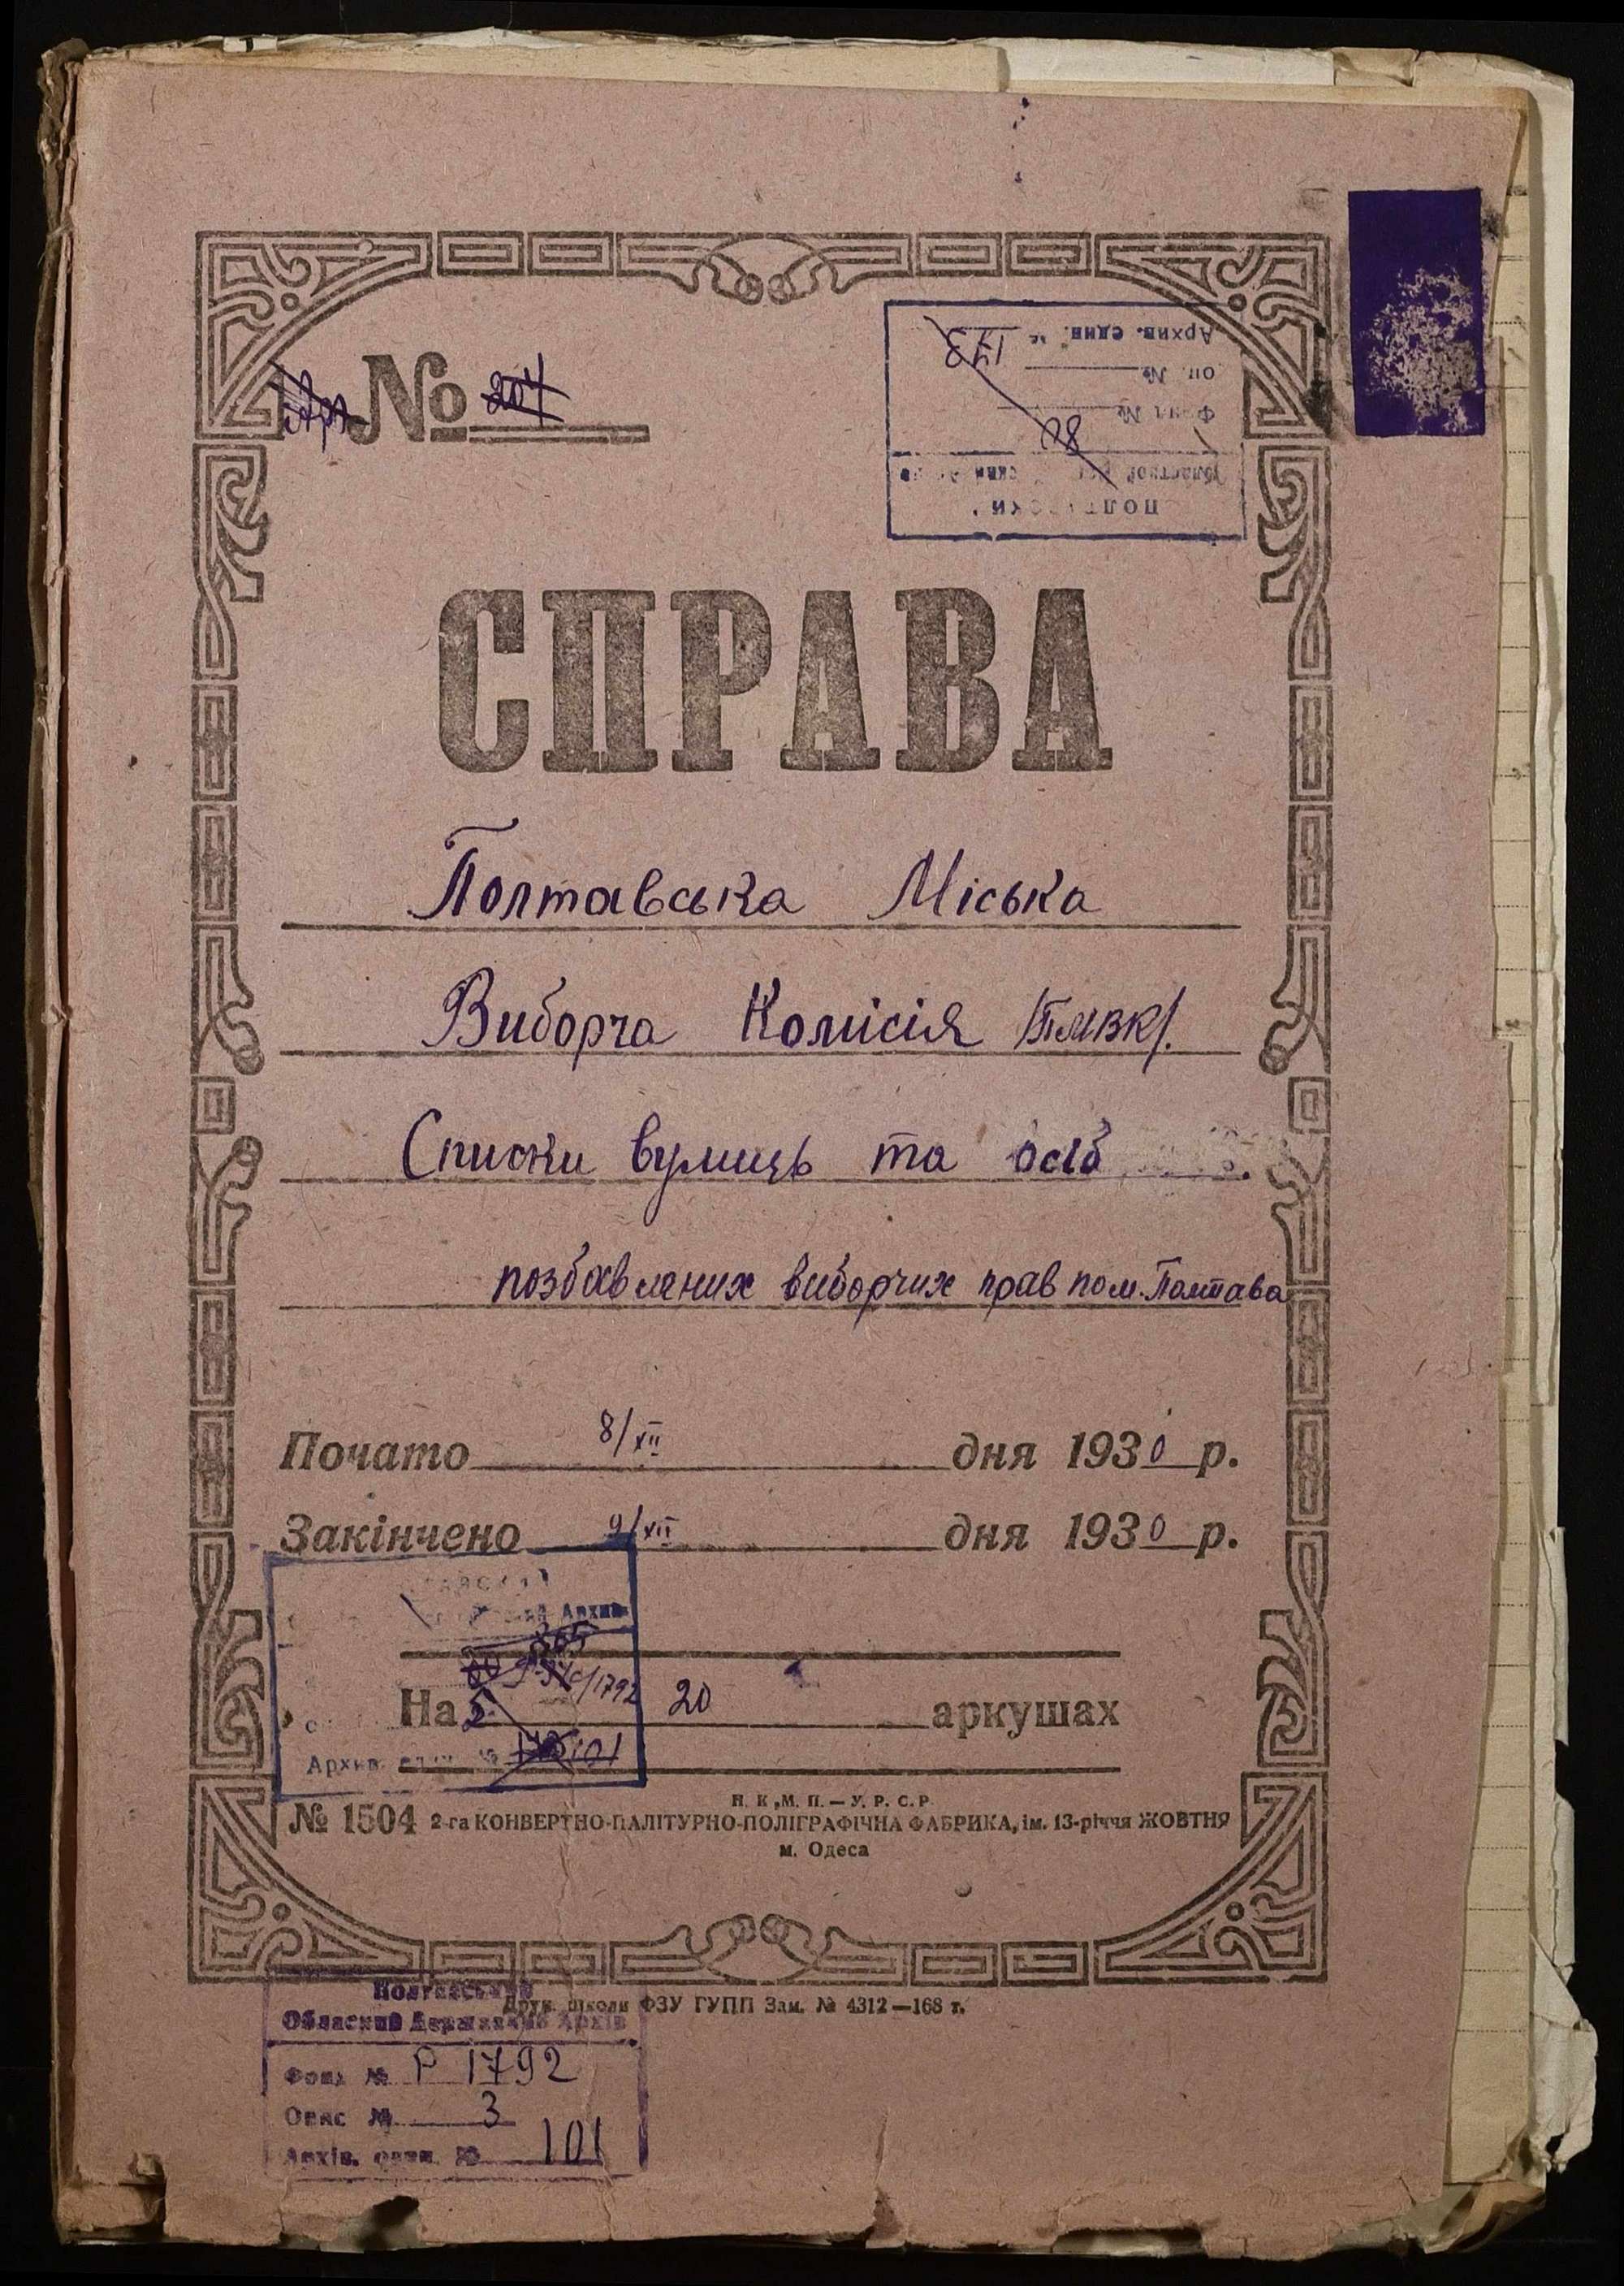 № 204
Архив. един. № 173
оп. №
Фонд №
28
СПРАВА
Полтавська Міська
Виборча Комісія /ПМВК/.
Списки вулиць та осіб
позбавлених виборчих прав по м. Полтава
Почато 8/XII дня 1930 р.
Закінчено 9/XII дня 1930 р.
Архив
1792
На 20 аркушах
Архив. един. № 101
Н. К. М. П. — У. Р. С. Р.
№ 1504 2-га КОНВЕРТНО-ПАЛІТУРНО-ПОЛІГРАФІЧНА ФАБРИКА, ім. 13-річчя ЖОВТНЯ
м. Одеса
Друк. школи ФЗУ ГУПП Зам. № 4312—168 т.
Полтавський
Обласний Державний Архів
Фонд № Р 1792
Опис № 3
Архів. один. № 101